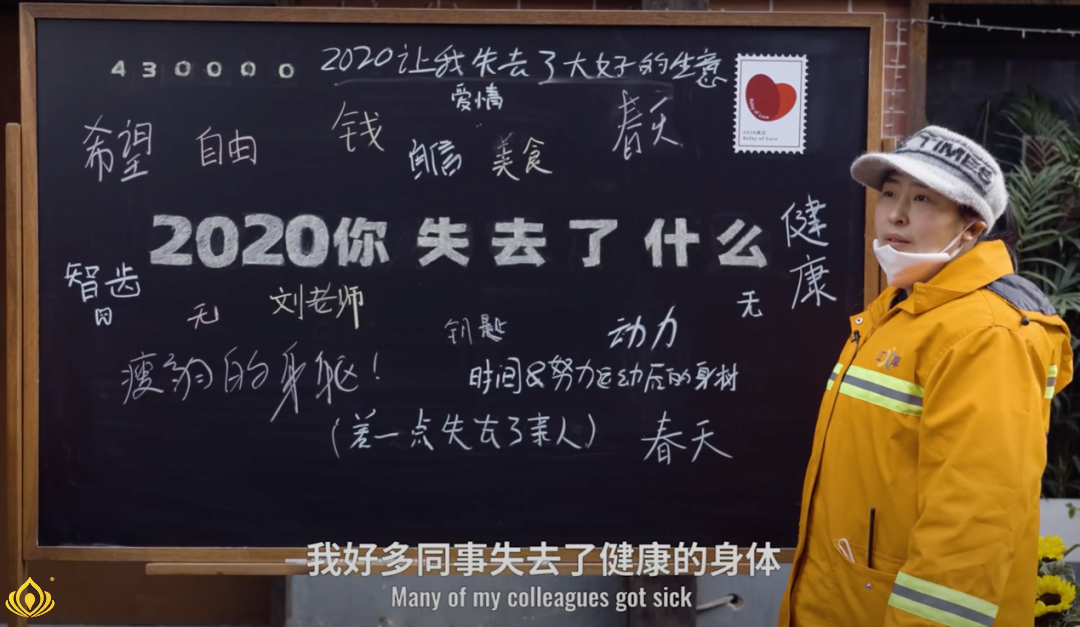 430000
2020让我失去了大好的生意
爱情
希望
自由
钱
自信
美食
春天
2020你失去了什么
健康
智齿
无
刘老师
钥匙
动力
无
时间&努力运动后的身材
(差一点失去了亲人)
春天
TIMES
我好多同事失去了健康的身体
Many of my colleagues got sick